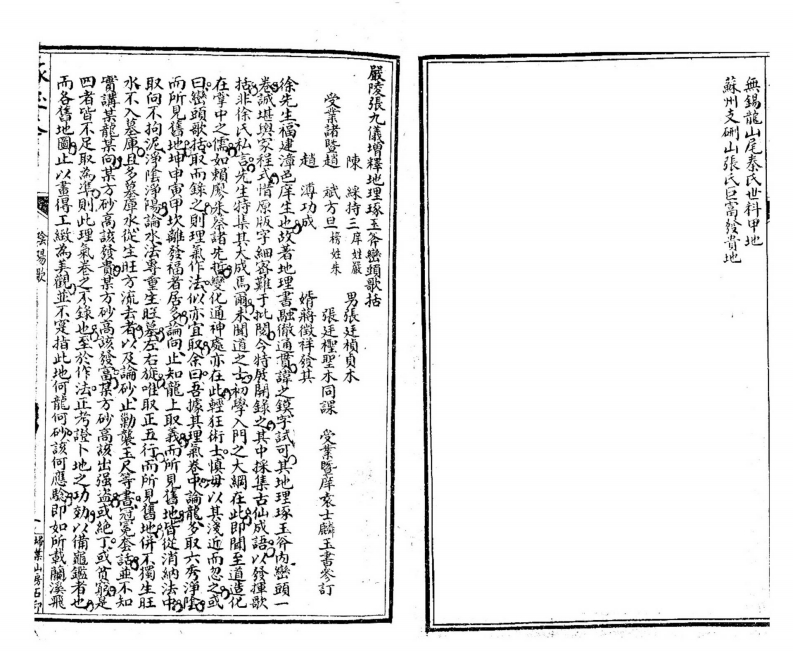 無錫龍山尾秦氏世科甲地
蘇州支硎山張氏巨富發貴地
嚴陵張九儀增釋地理琢玉斧巒頭歌括
陳 綵持三庠姓嚴 男張廷楨貞木
受業諸暨趙 斌方旦榜姓朱 張廷𬒗聖木同課 受業暨庠袁士麟玉書參訂
趙 溥功成 婿蔣徵祥發其
徐先生福建漳邑庠生也故著地理書融徹通貫諱之鏌字試可其地理琢玉斧內巒頭一
卷誠堪輿家程式惜原版字細密難于批閱今特展開錄之其中採集古仙成語以發揮歌
括非徐氏私言先生特集其大成焉爾未聞道之士初學入門之大綱在此即聞至道造化
在掌中之儒如賴廖朱蔡諸先哲變化通神處亦在此輕狂術士慎毋以其淺近而忽之或
曰巒頭歌括取而錄之則理氣作法似亦宜取余曰吾據其理氣卷中論龍多取六秀淨陰
而所見舊地坤申寅甲坎離發福者居多論向止知龍上取義而所見舊地皆從消納法中
取向不拘泥淨陰淨陽論水法專重生旺墓左右旋唯取正五行而所見舊地併不獨生旺
水不入墓庫且多墓庫水從生旺方流去者以及論砂止勦襲玉尺等書冠冕套話並不知
實講某龍某向某方砂高該發貴某方砂高該發富某方砂高該出强盜或絕丁或貧窮是
四者皆不足取為準則此理氣卷之不錄也至於作法正考證卜地之功效以備龜鑑者也
而各舊地圖止以畫得工緻為美觀並不寔指此地何龍何砂該何應驗即如所載蘭溪飛
陰陽歌
埽葉山房石印